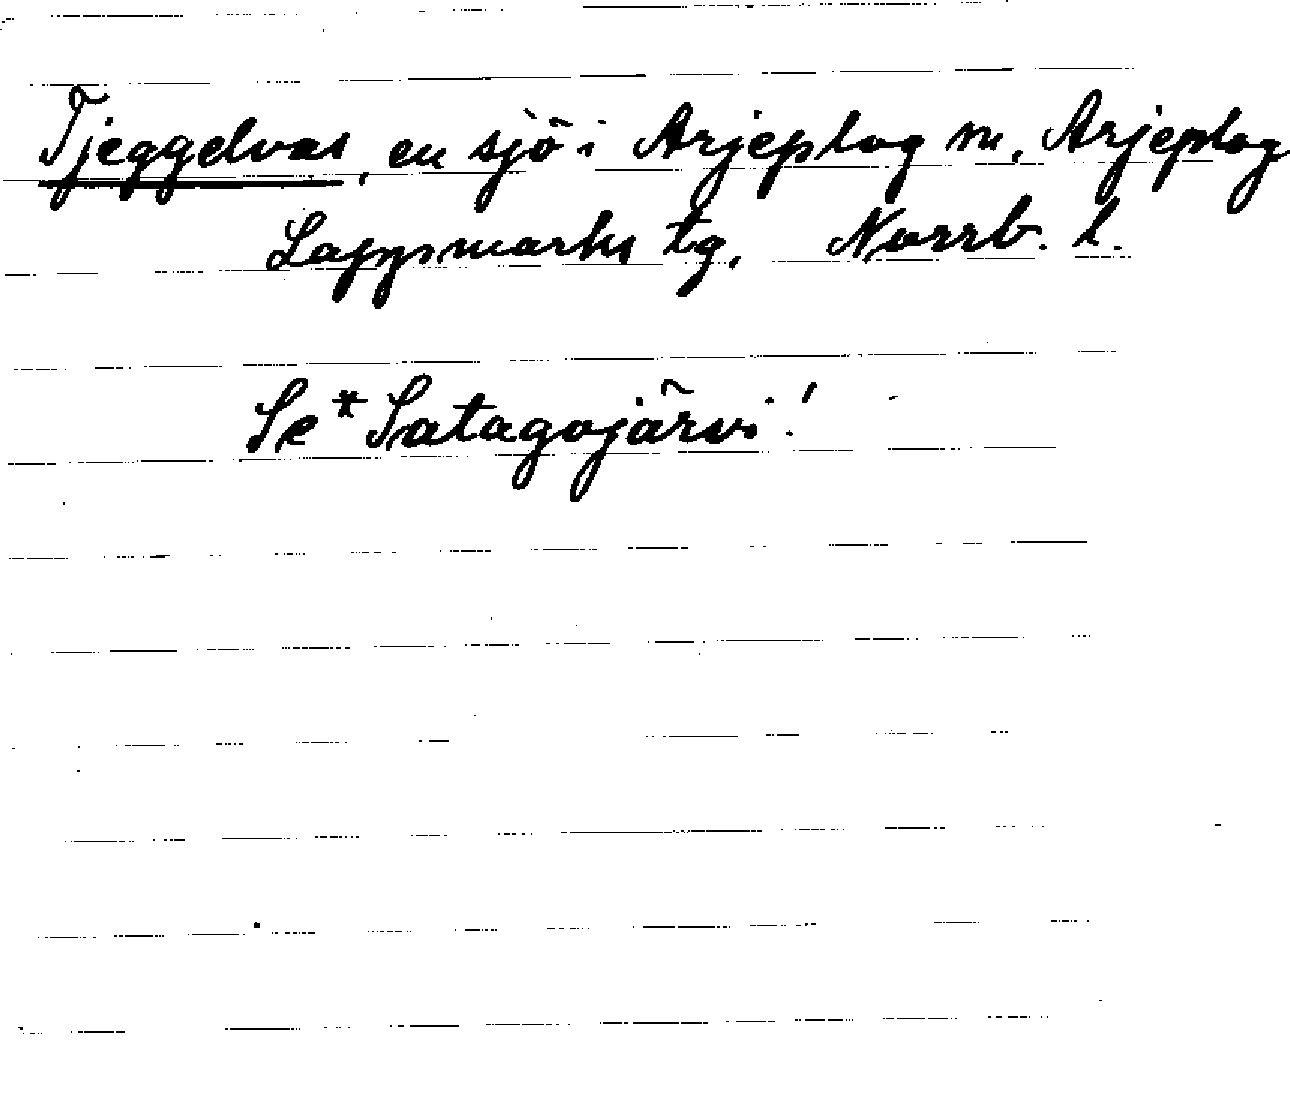 Tjeggelvas, en sjö i Arjeplog sn, Arjeplog
Lappmarks tg, Norrb. l.
Se *Satagojärvi!